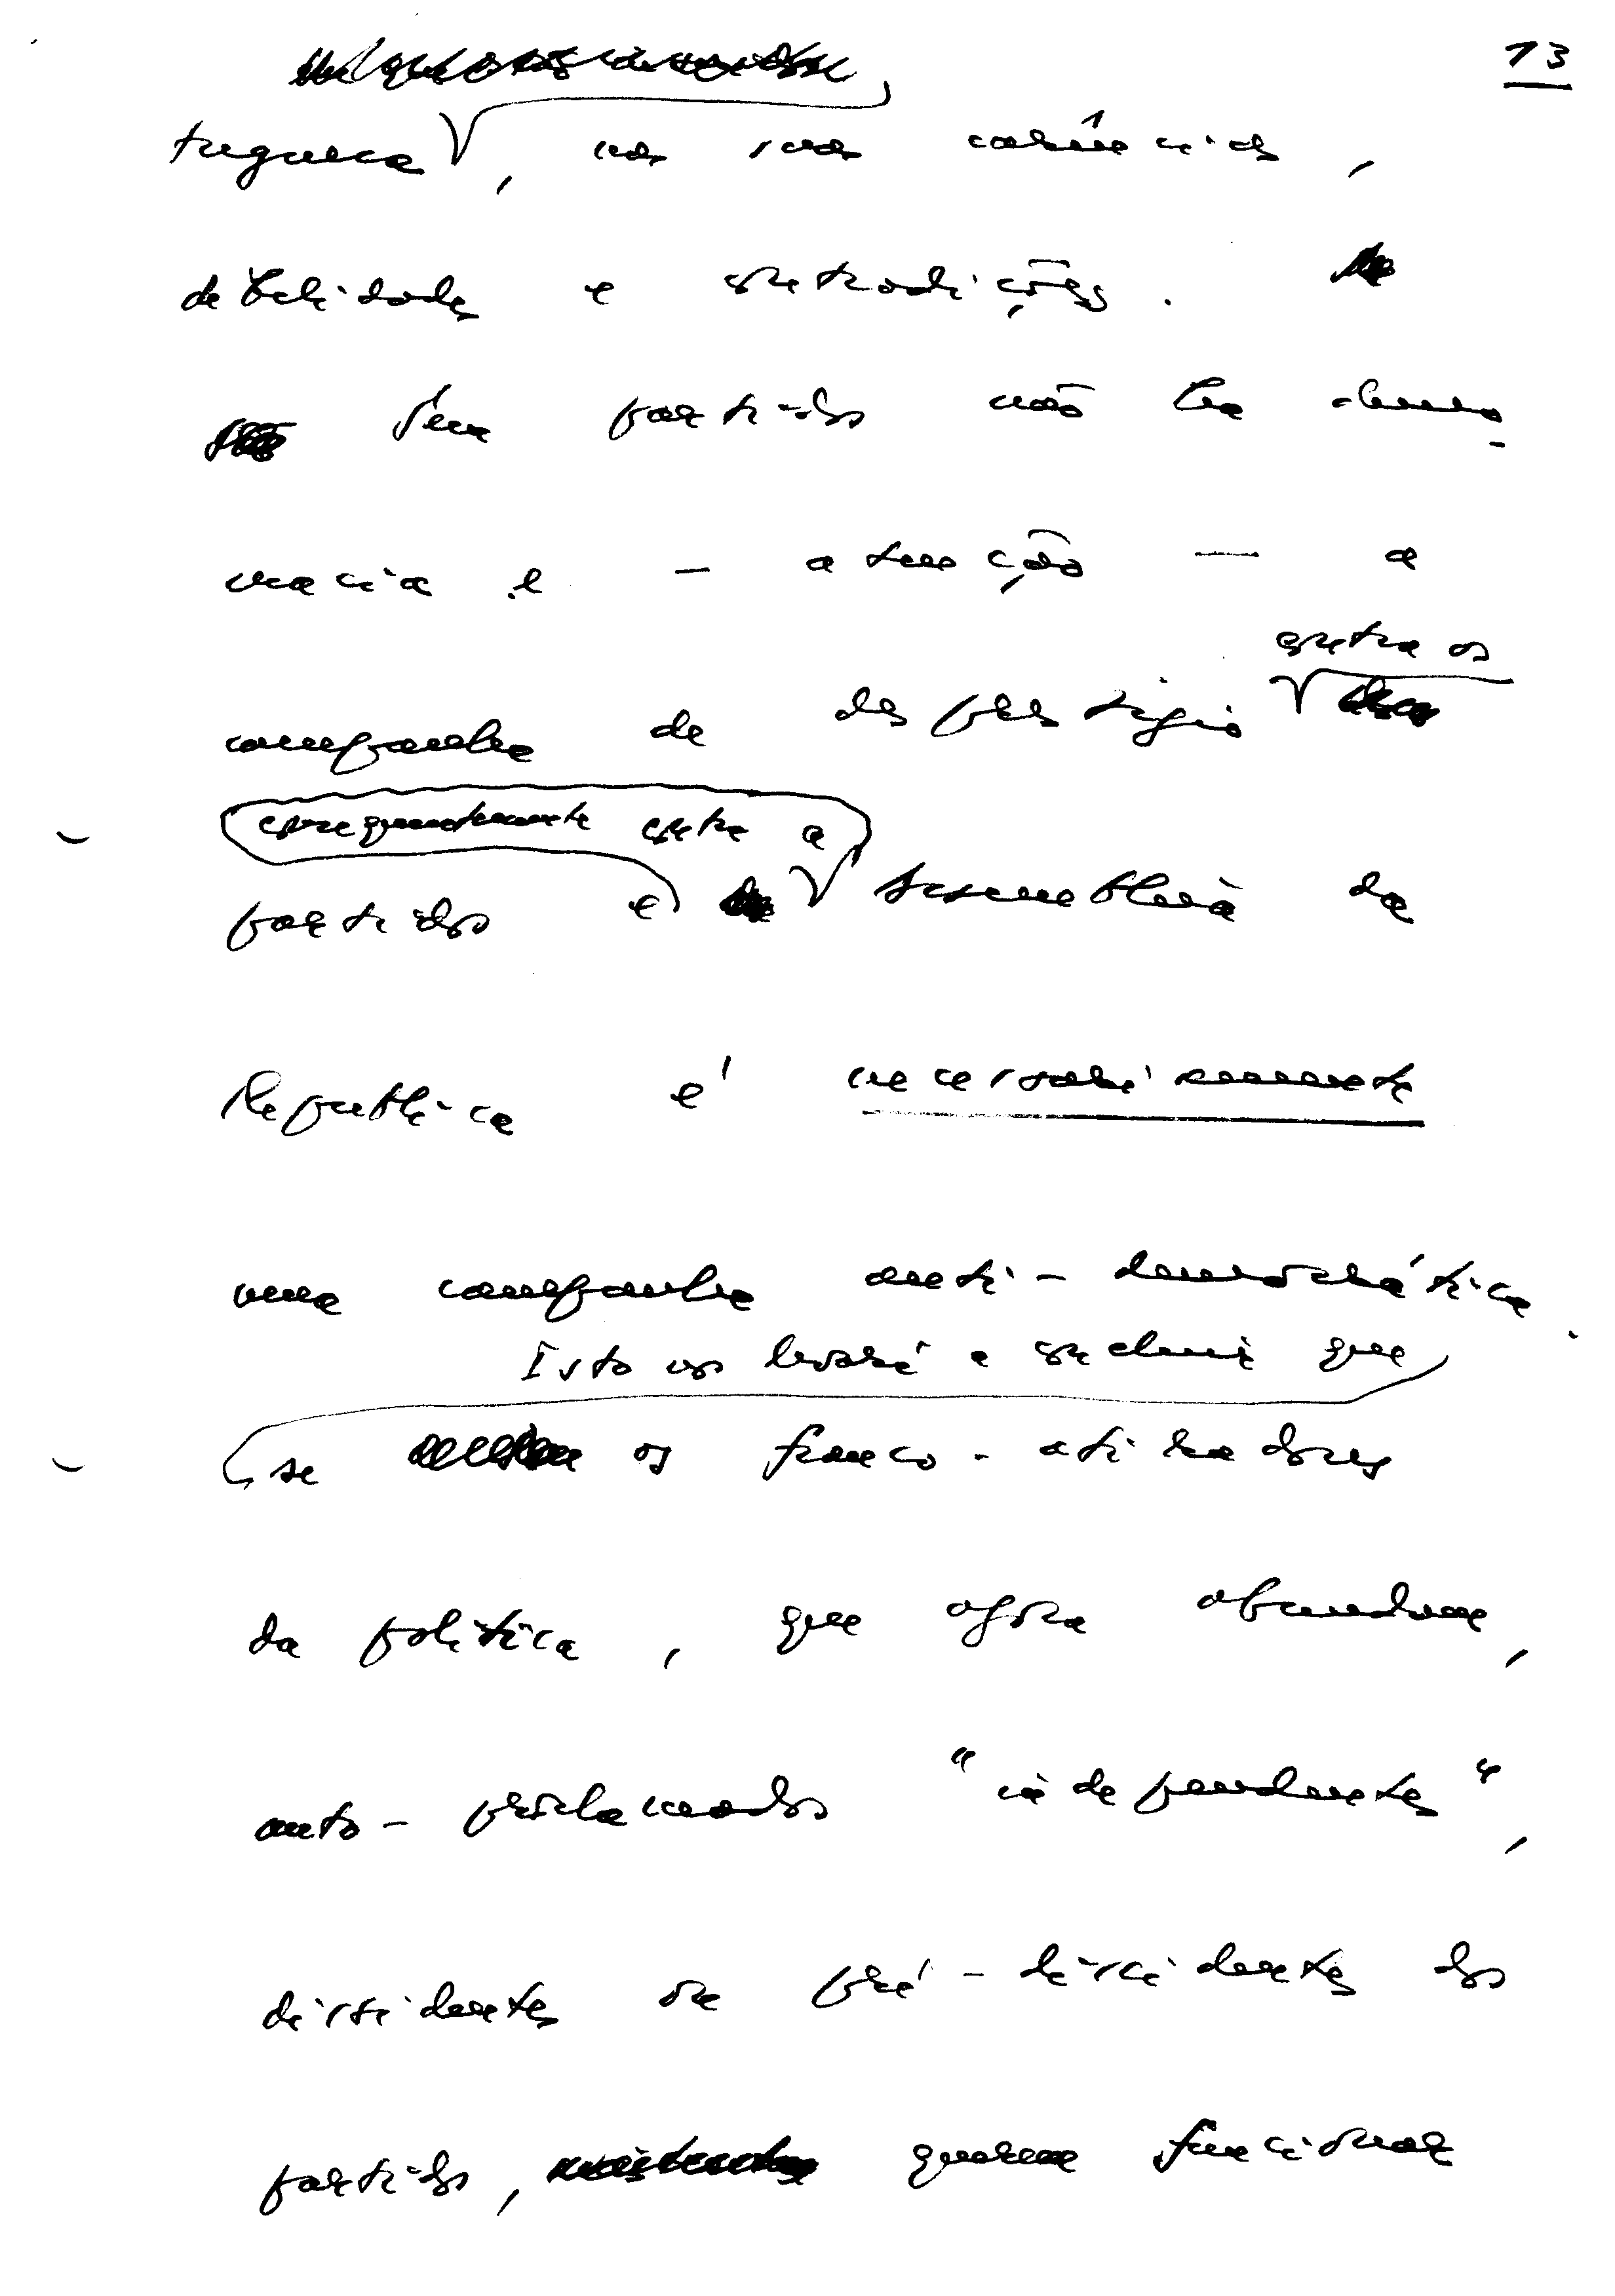 13
tuguesa, nas suas carências,
debilidades e contradições.
Sem partidos não há demo-
cracia e — atenção — a
contra os
campanha de desprestígio
consequentemente contra a
partidos e Assembleia da
República é necessariamente
uma campanha anti-democrática.
Isto nos levará a concluir que
se os franco-atiradores
da política, que agora abundam,
auto-proclamados "independentes",
dissidentes ou pré-dissidentes dos
partidos, querem funcionar